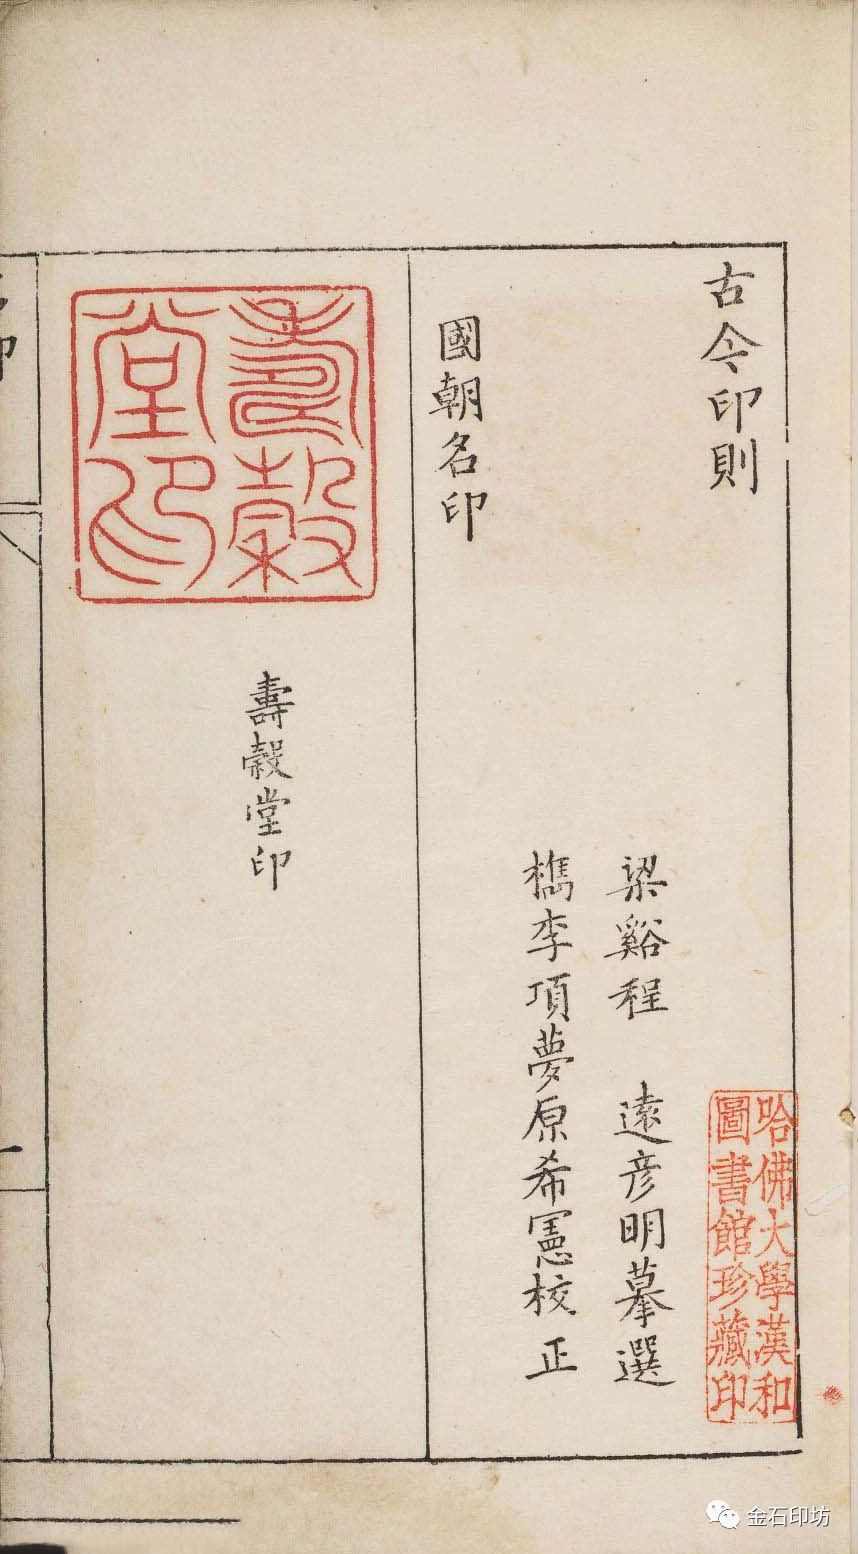 古今印則
梁谿程 遠彦明摹選
檇李項夢原希憲校正
國朝名印
壽穀堂印
壽穀堂印
哈佛大學漢和
圖書館珍藏印
名印
一
金石印坊